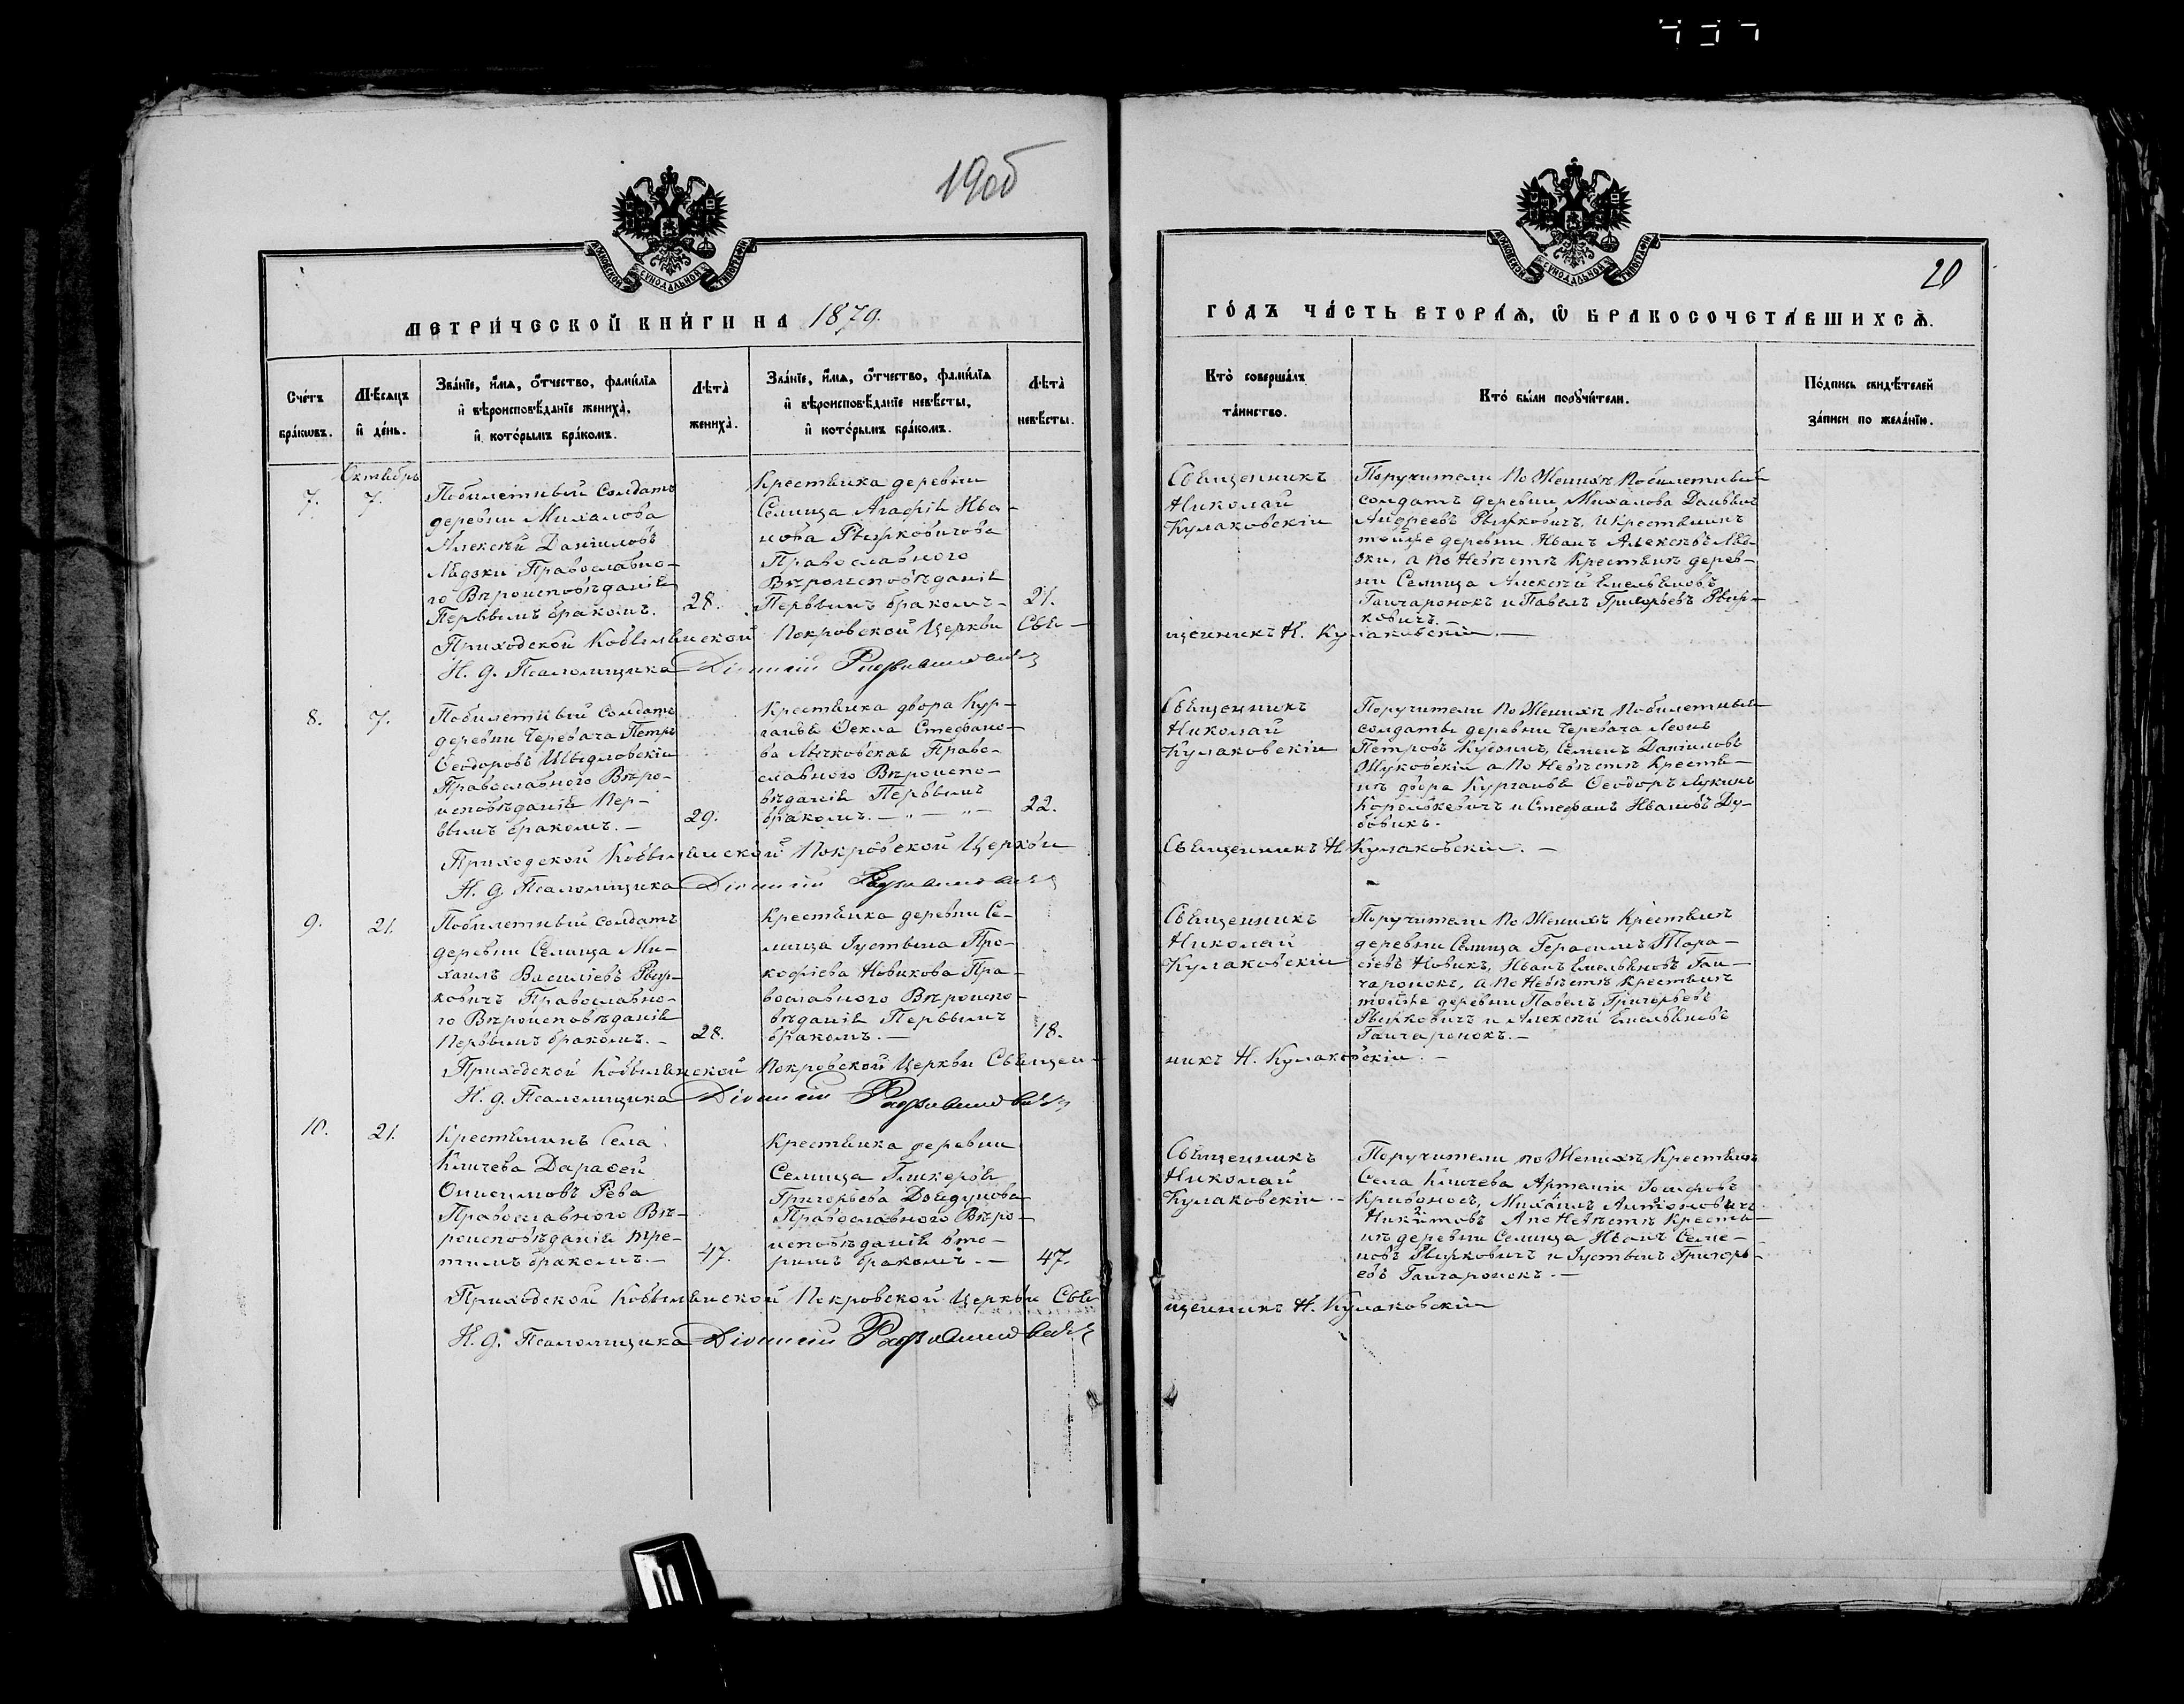 19об
20
МОСКОВСКОЙ СУНОДАЛЬНОЙ ТИПОГРАФІИ
МОСКОВСКОЙ СУНОДАЛЬНОЙ ТИПОГРАФІИ
МЕТРИ́ЧЕСКОЙ КНИ́ГИ НА 1879.
ГО́ДЪ ЧА́СТЬ ВТОРА́Ѧ, Ѽ БРАКОСОЧЕТА́ВШИХСѦ.
Сче́тъ бра́кѡвъ.
Мѣ́сѧцъ и҆ де́нь.
Зва́нїе, и҆́мѧ, ѻ҆́тчество, фами́лїѧ
и҆ вѣроисповѣ́данїе жениха̀,
и҆ кото́рымъ бра́комъ.
Лѣта̀ жениха̀.
Зва́нїе, и҆́мѧ, ѻ҆́тчество, фами́лїѧ
и҆ вѣроисповѣ́данїе невѣ́сты,
и҆ кото́рымъ бра́комъ.
Лѣта̀ невѣ́сты.
Кто̀ соверша́лъ та́инство.
Кто̀ бы́ли порꙋчи́тели.
По́дпись свидѣ́телей за́писи по жела́нїю.
Октябрь
7.
7.
Побилетный солдатъ
деревни Михалова
Алексѣй Даніиловъ
Лядзки Православно-
го Вѣроисповѣданія
Первымъ бракомъ.
28.
Крестьянка деревни
Селища Агафія Ива-
нова Рыжковичова
Православного
Вѣроисповѣданія
Первымъ бракомъ-
21.
Священникъ
Николай
Кулаковскій
Поручители По Женихѣ Побилетный
солдатъ деревни Михалова
Андреевъ Рыжковичъ, и крестьянинъ
тойже деревни Иванъ Алексѣевъ Ляд-
зки, а по Невѣстѣ Крестьянѣ дерев-
ни Селища Алексѣй Емельяновъ
Ганчаронокъ и Павелъ Григорьевъ Рыж-
ковичъ.-
Приходской Кобылянской Покровской Церкви Свя-
щенникъ Н. Кулаковскій.-
И. д. Псаломщика
8.
7.
Побилетный солдатъ
деревни Черевача Петръ
Ѳеодоровъ Шидловскій
Православного Вѣро-
исповѣданія Пер-
вымъ бракомъ.-
29.
Крестьянка двора Кур-
ганья Ѳекла Стефано-
ва Лычковская Право-
славного Вѣроиспо-
вѣданія Первымъ
бракомъ.- „ - „ -
22.
Священникъ
Николай
Кулаковскій
Поручители По Женихѣ Побилетный
солдаты деревни Черевача Леонъ
Петровъ Кубзинъ, Семенъ Даніиловъ
Жуковскій а По Невѣстѣ Крестья-
нѣ двора Курганья Ѳеодоръ Лукинъ
Королькевичъ и Стефанъ Ивановъ Ду-
бовикъ.
Приходской Кобылянской Покровской Церкви
Священникъ Н. Кулаковскій.-
И. д. Псаломщика
9.
21.
Побилетный солдатъ
деревни Селища Ми-
хаилъ Василіевъ Рыж-
ковичъ Православно-
го Вѣроисповѣданія
Первымъ бракомъ.-
28.
Крестьянка деревни Се-
лища Густына Про-
кофіева Новикова Пра-
вославного Вѣроиспо-
вѣданія Первымъ
бракомъ.-
18.
Священникъ
Николай
Кулаковскій
Поручители По Женихѣ Крестьянѣ
деревни Селища Герасимъ Тара-
сіевъ Новикъ, Иванъ Емельяновъ Ган-
чаронокъ, а по Невѣстѣ Крестьянѣ
тойже деревни Павелъ Григорьевъ
Рыжковичъ и Алексѣй Емельяновъ
Ганчаронокъ.-
Приходской Кобылянской Покровской Церкви Священ-
никъ Н. Кулаковскій.-
И. д. Псаломщика
10.
21.
Крестьянинъ Села
Кличева Дарафей
Онисимовъ Рева
Православного Вѣ-
роисповѣданія тре-
тимъ бракомъ.-
47.
Крестьянка деревни
Селища Гликерія
Григорьева Довдунова
Православного Вѣро-
исповѣданія вто-
римъ бракомъ.-
47.
Священникъ
Николай
Кулаковскій.-
Поручители по Женихѣ Крестьянѣ
Села Кличева Артемій Іосифовъ
Кривонос, Михаилъ Антоновичъ
Никитовъ А по Невѣстѣ Крестья-
нѣ деревни Селища Иванъ Семе-
новъ Рыжковичъ и Густынъ Григорь-
евъ Ганчаронокъ.-
Приходской Кобылянской Покровской Церкви Свя-
щенникъ Н. Кулаковскій
И. д. Псаломщика